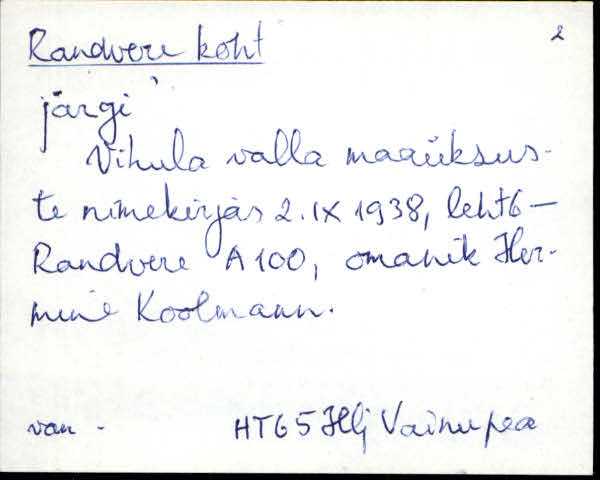 Randvere koht 2
järgi
Vihula valla maaüksus-
te nimekirjas 2. IX 1938, leht 6 —
Randvere A 100, omanik Her-
mine Koolmann.
van - HTG 5 Hlj Vainupea